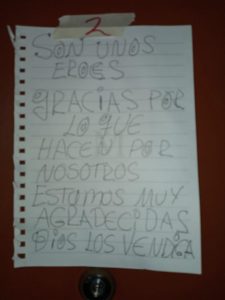 2
SON UNOS
EROES
GRACIAS POR
LO QUE
HACEN POR
NOSOTROS
ESTAMOS MUY
AGRADECIDAS
DIOS LOS VENDIGA